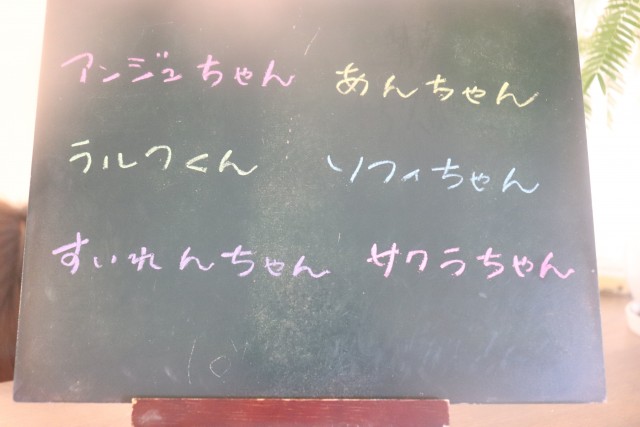 アンジュちゃん あんちゃん
ラルフくん ソフィちゃん
すいれんちゃん サクラちゃん